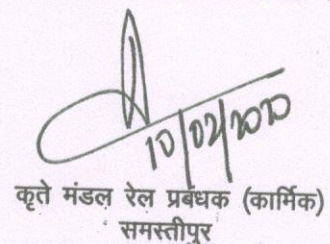 10/02/2020
कृते मंडल रेल प्रबंधक (कार्मिक)
समस्तीपुर